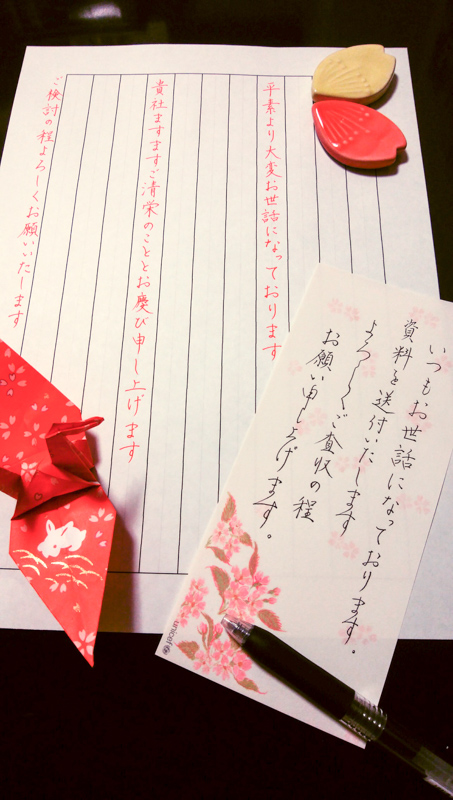 平素より大変お世話になっております
貴社ますますご清栄のこととお慶び申し上げます
ご検討の程よろしくお願いいたします
いつもお世話になっております。
資料を送付いたします
よろしくご査収の程
お願い申し上げます。
unicef